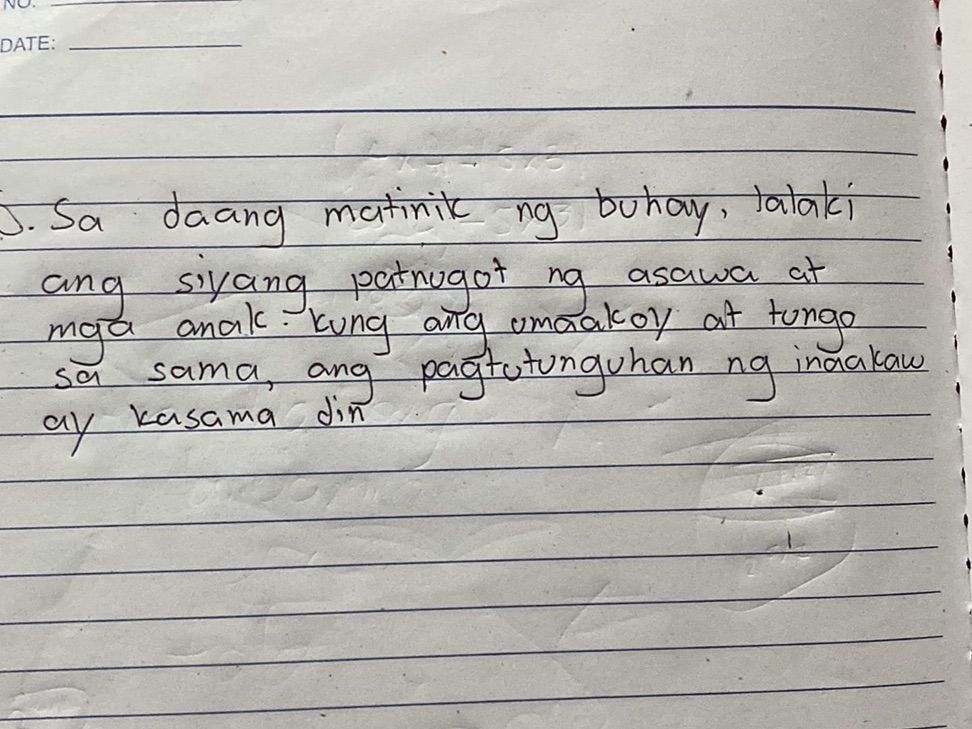 NO.
DATE:
. Sa daang matinik ng buhay, lalaki
ang siyang patnugot ng asawa at
mga anak. kung ang umaakoy at tungo
sa sama, ang pagtutunguhan ng inaakaw
ay kasama din